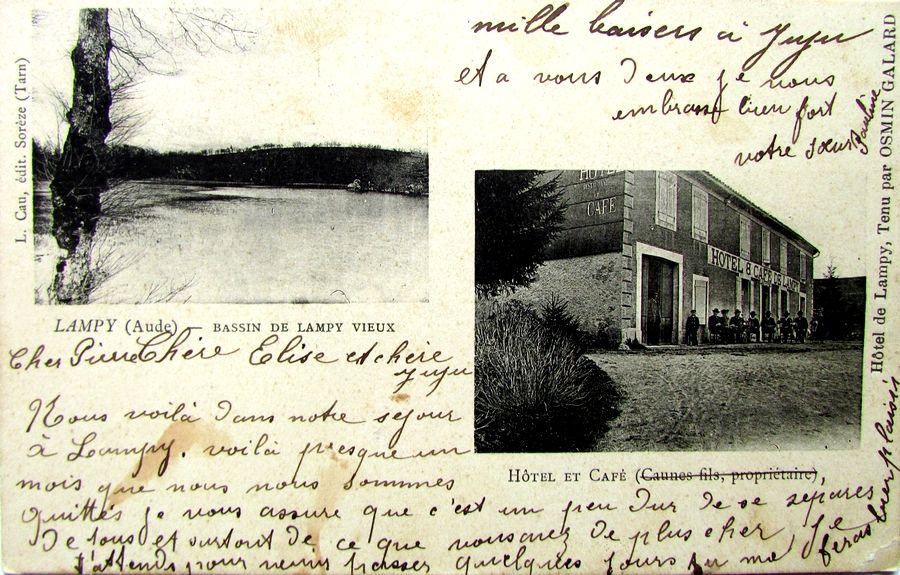 mille baisers à Yuyu
et a vous deux je vous
embrasse bien fort
votre soeur Pauline
L. Cau, édit. Sorèze (Tarn)
Hôtel de Lampy, Tenu par OSMIN GALARD
HOTEL
CAFÉ
HOTEL & CAFÉ DE LAMPY
LAMPY (Aude) — BASSIN DE LAMPY VIEUX
HÔTEL ET CAFÉ (Caunes fils, propriétaire)
Cher Pierre Chère Elise et chère
Yuyu
Nous voilà dans notre sejour
à Lampy, voilà presque un
mois que nous nous sommes
quittés je vous assure que c'est un peu dur de se separer
de tous et surtout de ce que vous avez de plus cher, je
t'attends pour venir passer quelques jours tu me
feras bien plaisir